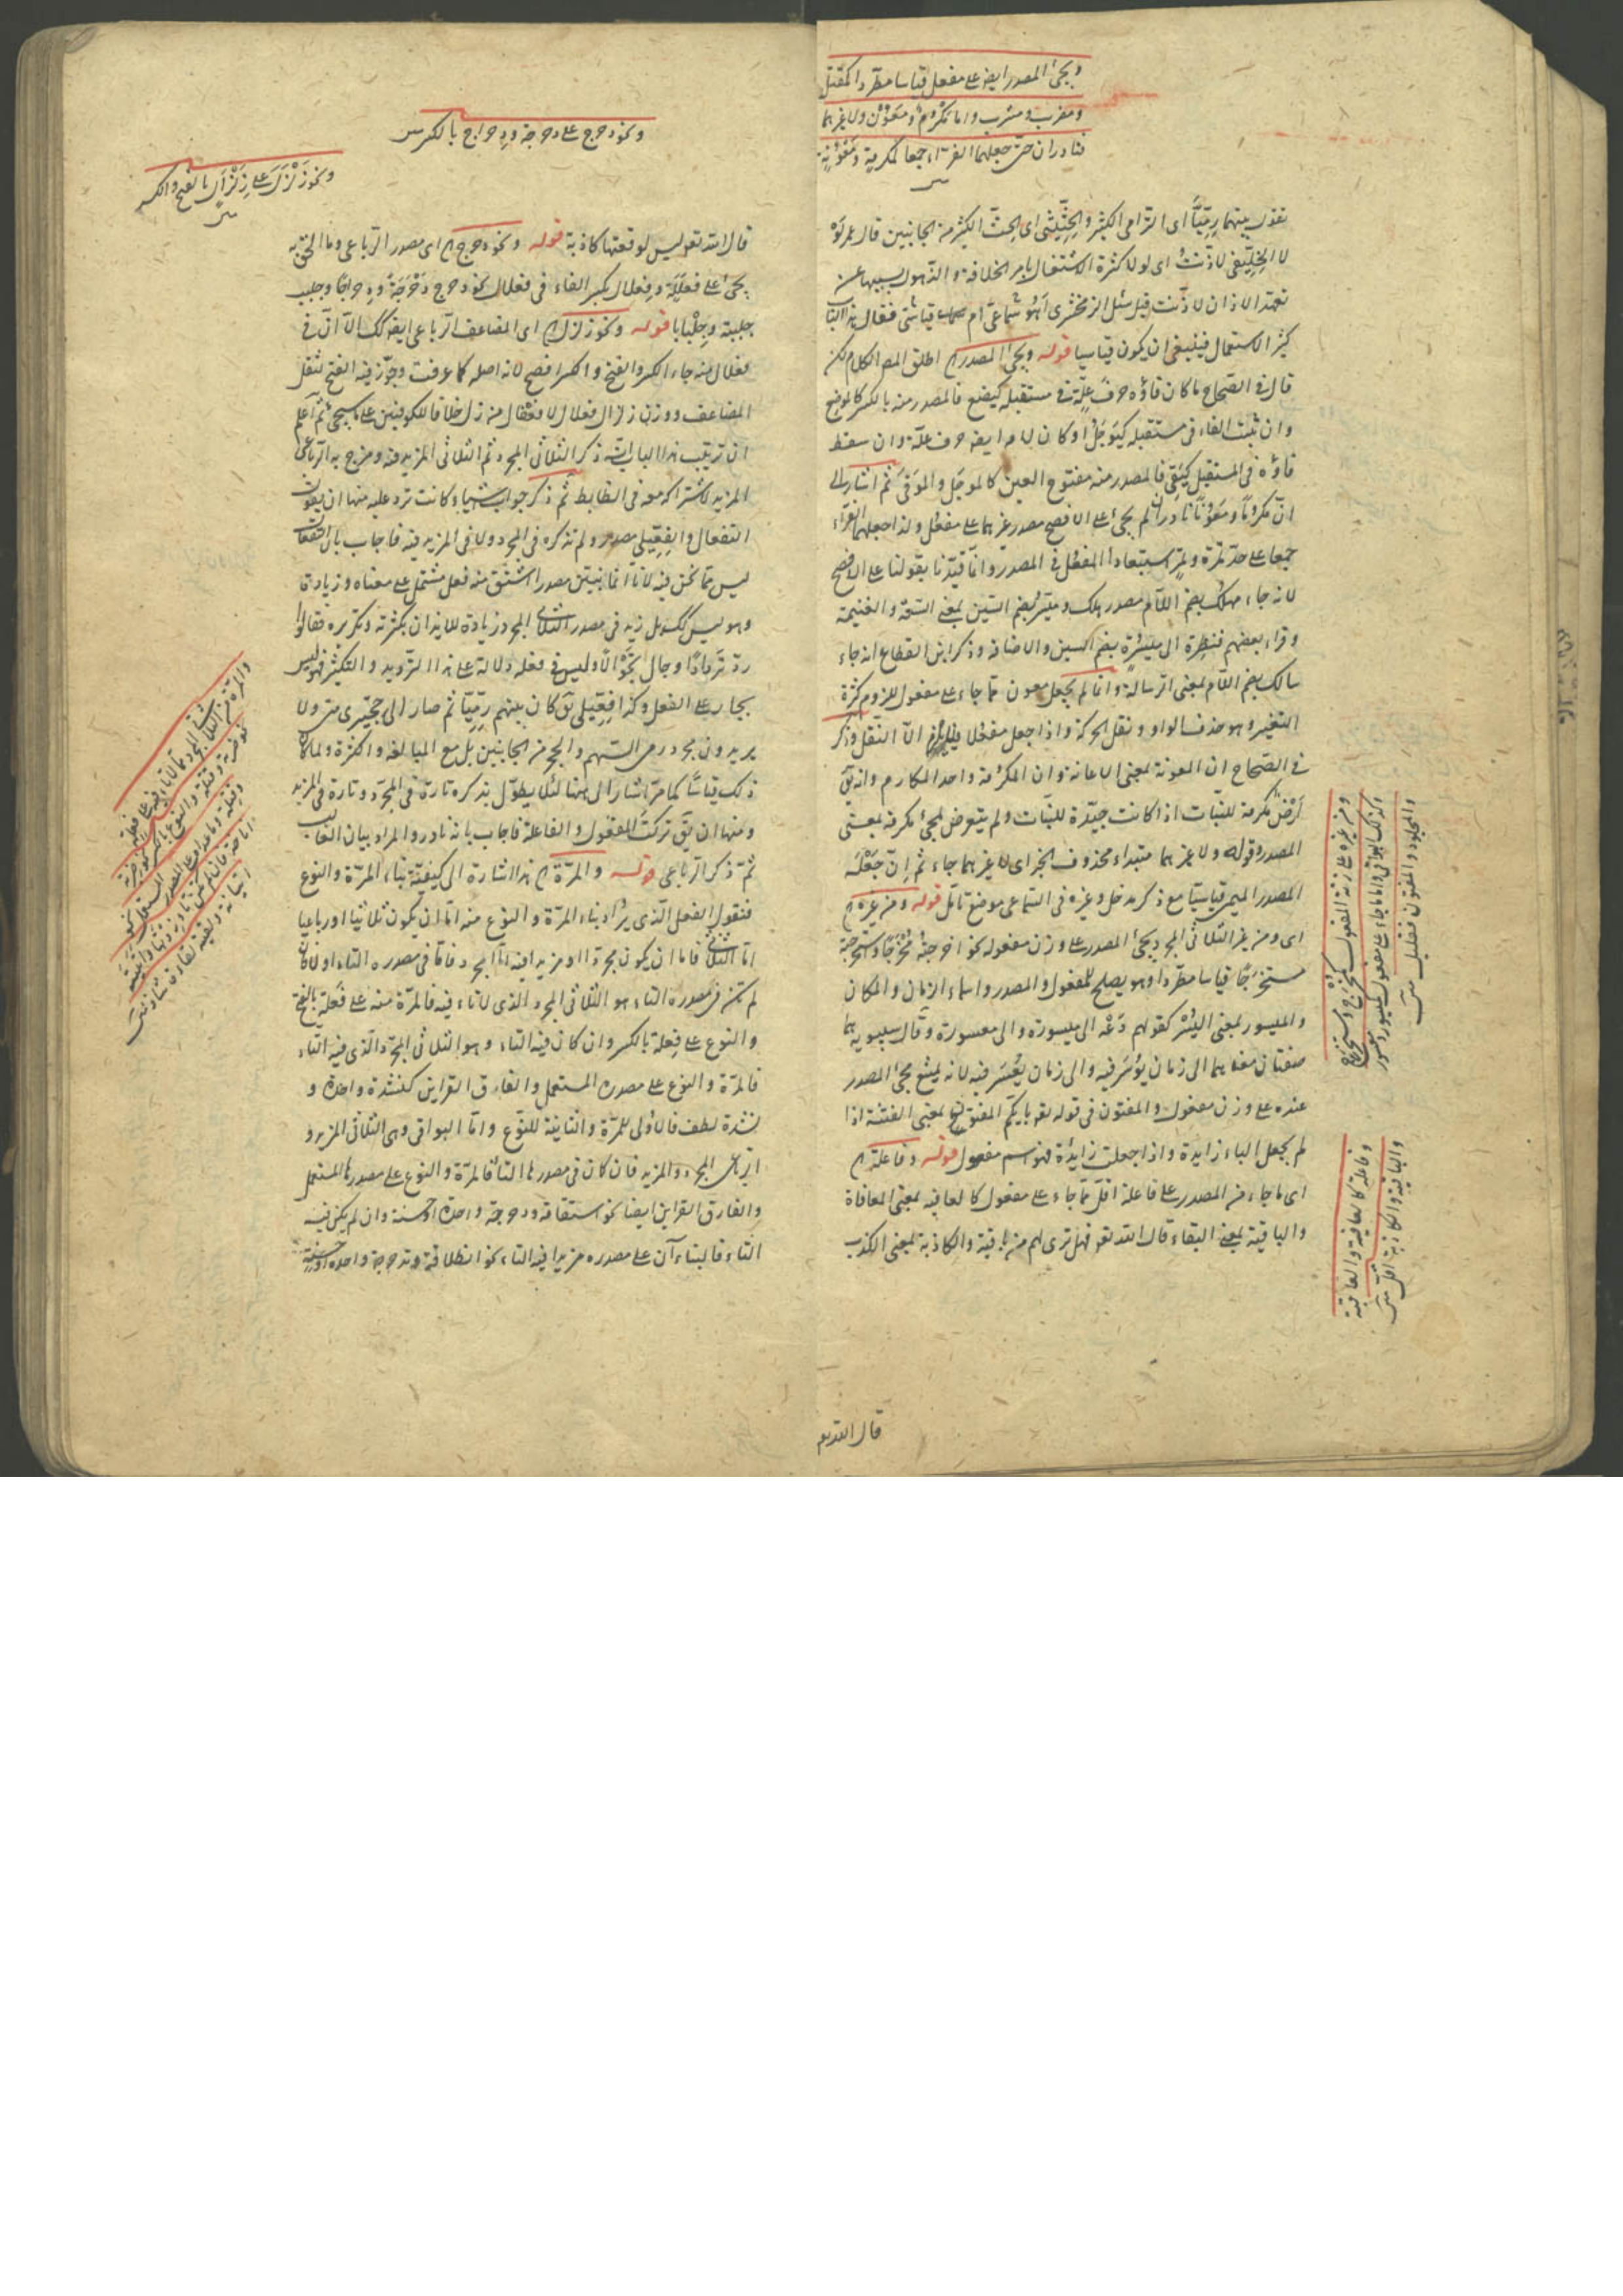 ويجيء المصدر ايضا على مفعل قياسا مطردا كمقتل
ومضرب ومشرب واما مكرم ومعون ولا غيرهما
فنادران حتى جعلهما الفراء جمعا لمكرمة ومعونة
تقول بينهما رميا اى الترامى الكثير والحثيثى اى الحث الكثير من الجانبين قال عمر لو
لا الخليفى لاذنت اى لولا كثرة الاشتغال بامر الخلافة والذهول بسببها عن
تعهد الاذان لاذنت قيل سئل الزمخشرى أهو سماعى ام قياسى فقال هذا الباب
كثير الاستعمال فينبغى ان يكون قياسيا قوله ويجيء المصدر اطلق المص الكلام لكن
قال فى الصحاح ما كان فاؤه حرف علة فى مستقبله كيضع فالمصدر منه بالكسر كالموضع
وان ثبت الفاء فى مستقبله كيوجل او كان لامه ايضا حرف علة وان سقط
فاؤه فى المستقبل كيقى فالمصدر منه مفتوح العين كالموجل والموقى ثم اشار الى
ان مكرما ومعونا نادران لم يجئ على الافصح مصدر غيرهما على مفعل ولذا جعلهما الفراء
جمعا على حد تمرة وتمر استبعادا لمفعل فى المصدر وانما قيدنا بقولنا على الافصح
لانه جاء مهلك بضم اللام مصدر هلك وميسر بضم السين بمعنى السعة والغنيمة
وقراء بعضهم فنظرة الى ميسرة بضم السين والاضافة وذكر ابن القطاع انه جاء
مالك بضم اللام بمعنى الرسالة وانما لم يجعل معون مما جاء على مفعول للزوم كثرة
التغيير وهو حذف الواو ونقل الحركة واذا جعل مفعلا فلا يلزم الا النقل وذكر
فى الصحاح ان المعونة بمعنى الاعانة وان المكرمة واحد المكارم وانه يق
أرض مكرمة للنبات اذا كانت جيدة للنبات ولم يتعرض لمجئ مكرمة بمعنى
المصدر وقوله ولا غيرهما مبتداء محذوف الخبر اى لا غيرهما جاء ثم إن جعله
المصدر الميمى قياسيا مع ذكر مدخل وغيره فى السماعى موضع تامل قوله ومن غيره
اى ومن غير الثلاثى المجرد يجئ المصدر على وزن مفعوله نحو اخرجته مخرجا واستخرجته
مستخرجا قياسا مطردا وهو يصلح للمفعول والمصدر واسماء الزمان والمكان
والميسور بمعنى اليسر كقولهم دعه الى ميسوره والى معسوره وقال سيبويه هما
صفتان معناهما الى زمان يوسر فيه والى زمان يعسر فيه لانه يمنع مجئ المصدر
عنده على وزن مفعول والمفتون فى قوله تعه بايكم المفتون بمعنى الفتنة اذا
لم يجعل الباء زايدة واذا جعلت زايدة فهو اسم مفعول قوله وفاعلة
اى ما جاء من المصدر على فاعلة اقل مما جاء على مفعول كالعافية بمعنى المعافاة
والباقية بمعنى البقاء قال الله تعه فهل ترى لهم من باقية والكاذبة بمعنى الكذب
ومن غيره على زنة المفعول كمخرج ومستخرج
وكذلك البواقى واما ما جاء على مفعول كميسور ومعسور
والمجلود والمفتون فقليل
وفاعلة كالعافية والعاقبة
والباقية والكاذبة اقل
قال الله تعه
ونحو دحرج على دحرجة ودحراج بالكسر
ونحو زلزل على زلزال بالفتح والكسر
قال الله تعه ليس لوقعتها كاذبة قوله ونحو دحرج اى مصدر الرباعى وما الحق به
يجئ على فعللة وفعلال بكسر الفاء فى فعلال نحو دحرج دحرجة ودحراجا وجلبب
جلببة وجلبابا قوله ونحو زلزل اى المضاعف الرباعى ايضا كك الا ان فى
فعلال منه جاء الكسر والفتح والكسر افصح لانه اصله كما عرفت وجوز فيه الفتح لثقل
المضاعف ووزن زلزال فعلال لا فعفال من زل خلافا للكوفيين على ما سيجئ ثم اعلم
ان ترتيب هذا الباب انه ذكر الثلاثى المجرد ثم الثلاثى المزيد فيه ومزج به الرباعى
المزيد لاشتراكه معه فى الضابط ثم ذكر جواب اشياء كانت ترد عليه منها ان يقول
التفعال والفعيلى مصدر ولم تذكره فى المجرد ولا فى المزيد فيه فاجاب بان التفعال
ليس مما نحن فيه لانا انما نبين مصدرا اشتق منه فعل مشتمل على معناه وزيادة
وهو ليس كك بل زيد فى مصدر الثلاثى المجرد زيادة للايذان بكثرته وتكريره فقالوا
رد تردادا وجال تجوالا وليس فى فعله دلالة على هذا الترديد والتكثير فليس
بجار على الفعل وكذا فعيلى يق كان بينهم رميا ثم صار الى حجيزى ولا
يريدون مجرد رمى السهم والحجر من الجانبين بل مع المبالغة والكثرة ولما كان
ذلك قياسا كما مر اشار اليهما لئلا يطول بذكره تارة فى المجرد وتارة فى المزيد
ومنها ان يق تركت المفعول والفاعلة فاجاب بانه نادر والمراد بيان الغالب
ثم ذكر الرباعى قوله والمرة هذا اشارة الى كيفية بناء المرة والنوع
فنقول الفعل الذى يراد بناء المرة والنوع منه اما ان يكون ثلاثيا او رباعيا
اما الثلاثى فاما ان يكون مجردا او مزيدا فيه اما المجرد فاما فى مصدره التاء او لا فان
لم تكن فى مصدره التاء هو الثلاثى المجرد الذى لا تاء فيه فالمرة منه على فعلة بالفتح
والنوع على فعلة بالكسر وان كان فيه التاء وهو الثلاثى المجرد الذى فيه التاء
فالمرة والنوع على مصدره المستعمل والفارق القراين كنشدة واحدة و
نشدة لطف فالاولى للمرة والثانية للنوع واما البواقى وهى الثلاثى المزيد و
الرباعى المجرد والمزيد فان كان فى مصدرها التاء فالمرة والنوع على مصدرها المستعمل
والفارق القراين ايضا نحو استقامة ودحرجة واحدة او حسنة وان لم يكن فيه
التاء فالبناءآن على مصدره مزيدا فيه التاء نحو انطلاقة وتدحرجة واحدة او حسنة